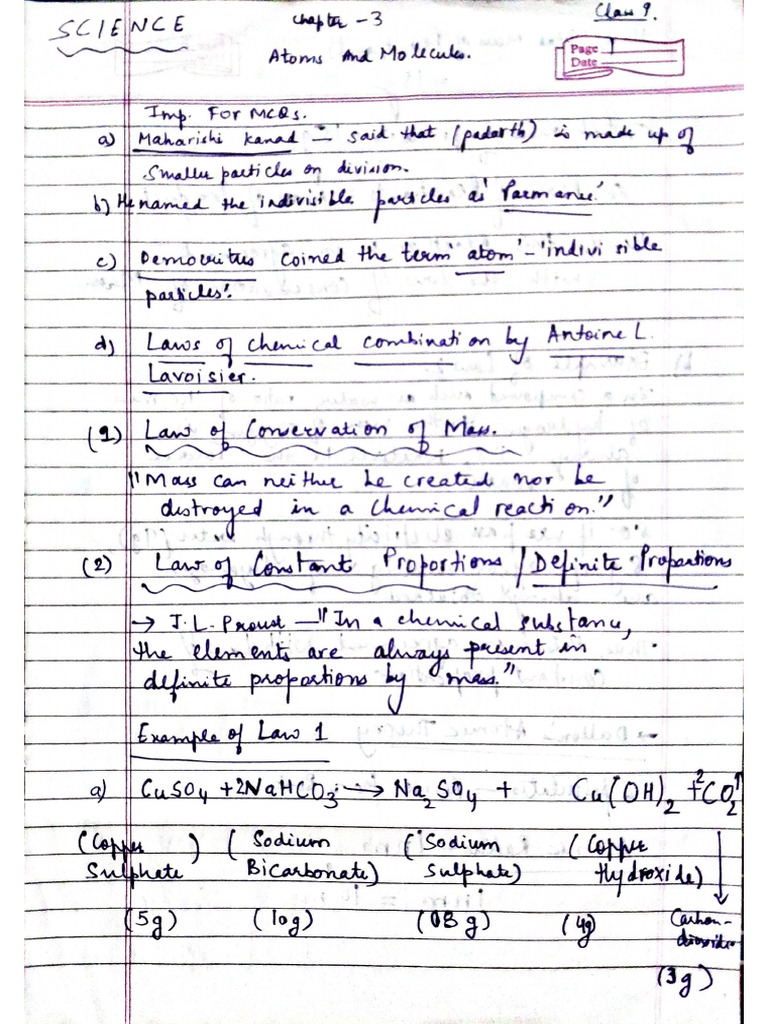 SCIENCE
Chapter - 3
Class 9.
Atoms And Molecules.
Page 1
Date
Imp. For MCQs.
a) Maharishi Kanad – said that (padarth) is made up of
smaller particles on division.
b) He named the indivisible particles as 'Parmanu'.
c) Democritus coined the term 'atom' – 'indivisible
particles'.
d) Laws of chemical combination by Antoine L.
Lavoisier.
(1) Law of Conservation of Mass.
"Mass can neither be created nor be
distroyed in a chemical reaction."
(2) Law of Constant Proportions / Definite Proportions
→ J.L. Proust – "In a chemical substance,
the elements are always present in
definite proportions by mass."
Example of Law 1
a) CuSO4 + 2NaHCO3 → Na2SO4 + Cu(OH)2 + 2CO2↑
(Copper Sulphate) (Sodium Bicarbonate) (Sodium Sulphate) (Copper Hydroxide) Carbon-dioxide
(5g) (10g) (08 g) (4g)
(3g)